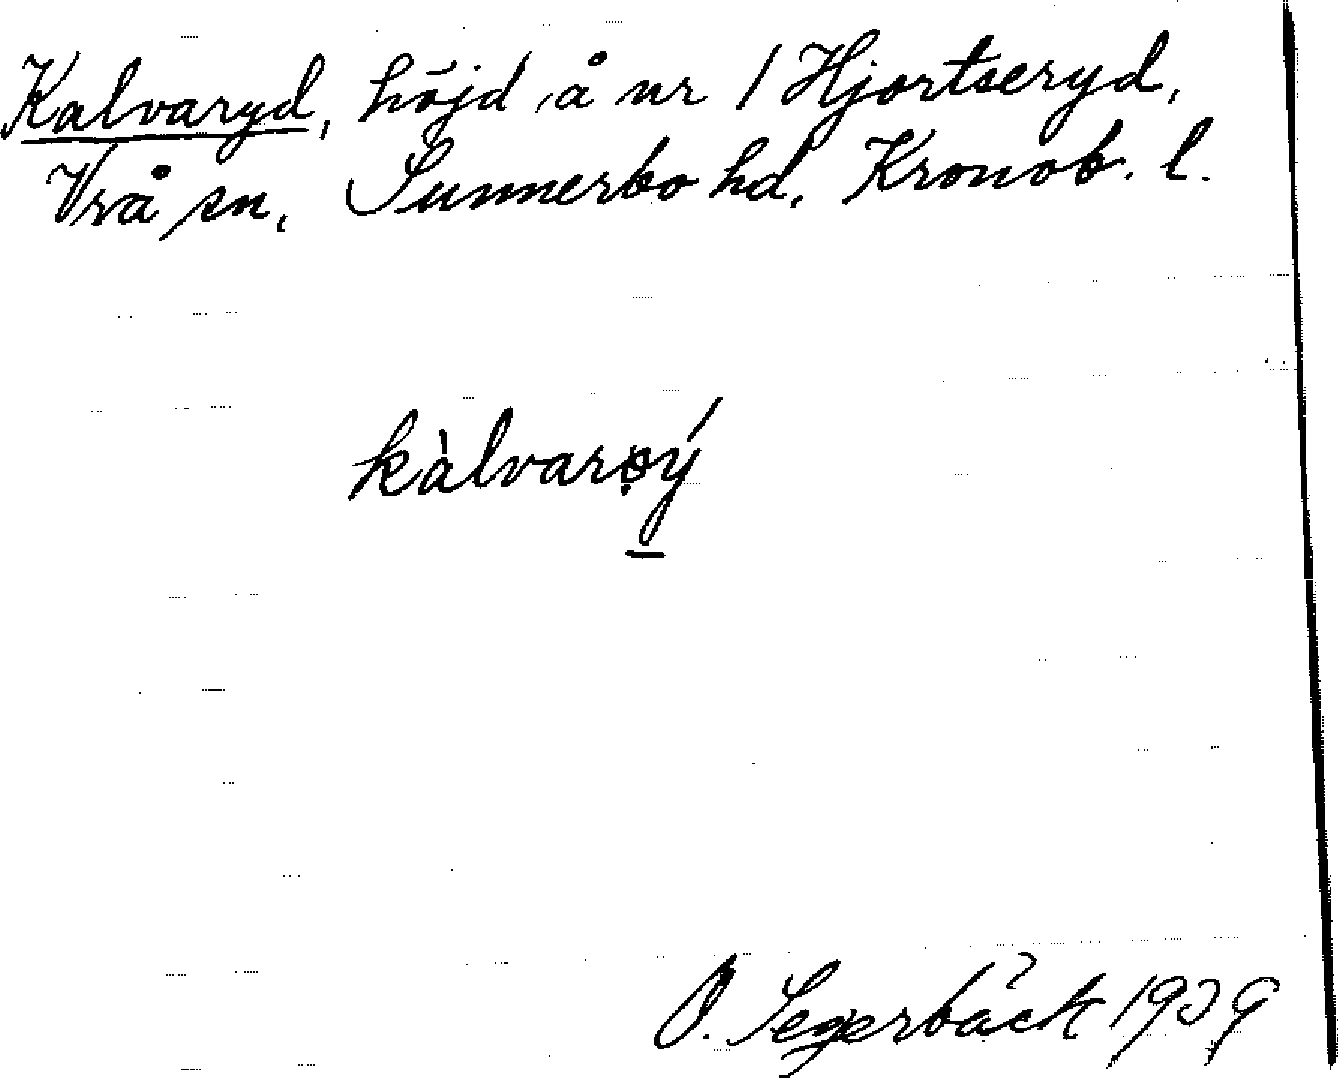 Kalvaryd, höjd å nr 1 Hjortseryd,
Vrå sn, Sunnerbo hd, Kronob. l.
kàlvarəý
O. Segerbäck 1939